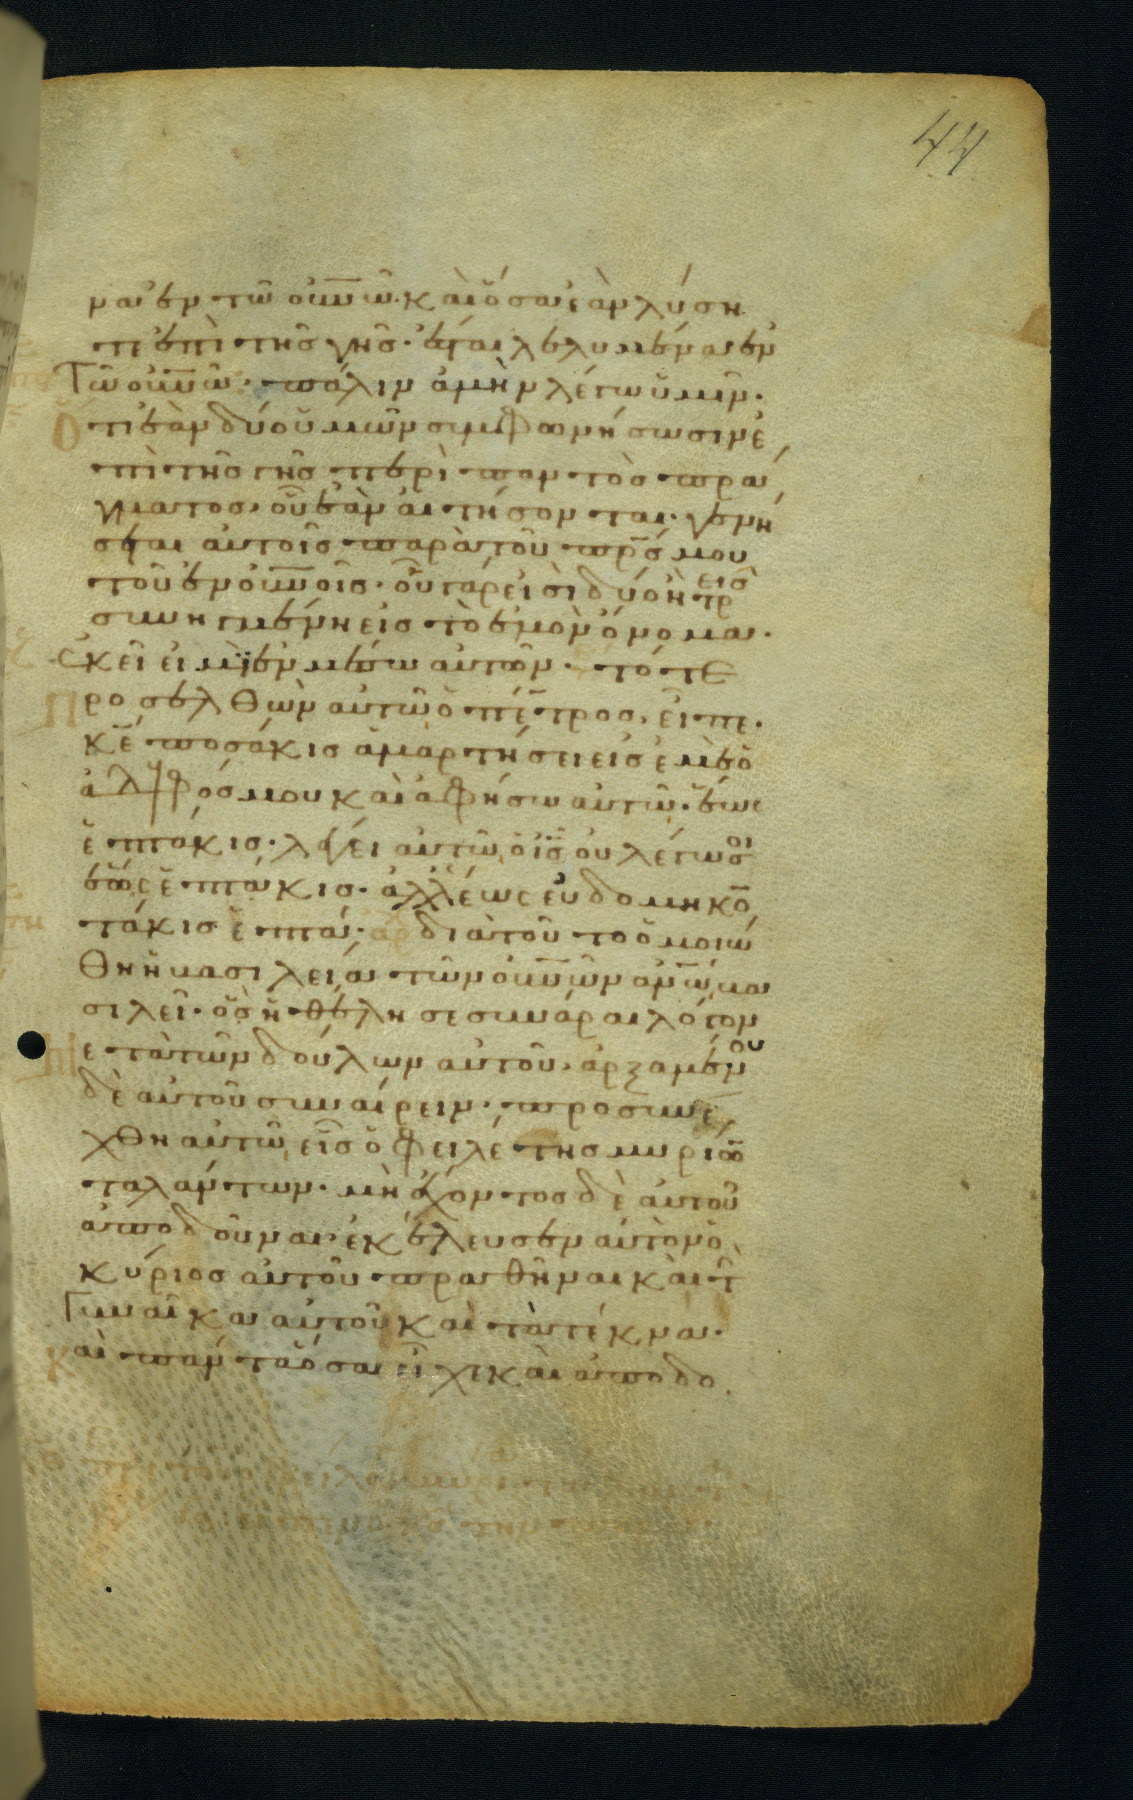 44
να ἐν τῶ οὐνῶ· καὶ ὅσα ἐὰν λύση
τε ἐπὶ τῆς γῆς· ἔσται λελυμένα ἐν
τῶ οὐνῶ· πάλιν ἀμὴν λέγω ὑμῖν·
ὅτι ἐὰν δύο ὑμῶν συμφωνήσωσιν ἐ
πὶ τῆς γῆς περὶ παντὸς πρά
γματος οὗ ἐὰν αἰτήσονται· γενή
σεται αὐτοῖς παρὰ τοῦ πρς μου
τοῦ ἐν οὐνοῖς· οὗ γάρ εἰσὶ δύο ἢ τρεῖς
συνηγμένη εἰς τὸ ἐμὸν ὄνομα·
ἐκεῖ εἰμὶ ἐν μέσω αὐτῶν· τότε
προσελθὼν αὐτῶ ὁ πέτρος, εἶπε·
κε ποσάκις ἁμαρτήσει εἰς ἐμὲ ὁ
ἀδελφός μου καὶ ἀφήσω αὐτῶ· ἕως
ἑπτάκις· λέγει αὐτῶ ὁ ις οὐ λέγω σοι
ἕως ἑπτάκις· ἀλλ' ἕως ἑβδομηκο
τάκις ἑπτά· διὰ τοῦτο ὁμοιώ
θη ἡ βασιλεία τῶν οὐνῶν ανω βα
σιλεῖ· ὃς ἠθέλησε συνᾶραι λόγον
μετὰ τῶν δούλων αὐτοῦ· ἀρξαμένου
δὲ αὐτοῦ συναίρειν· προσηνέ
χθη αὐτῶ εἷς ὀφειλέτης μυρίων
ταλάντων· μὴ ἔχοντος δὲ αὐτοῦ
ἀποδοῦναι· ἐκέλευσεν αὐτὸν ὁ
κύριος αὐτοῦ πραθῆναι καὶ τ
γυναῖκα αὐτοῦ καὶ τὰ τέκνα·
καὶ πάντα ὅσα εἶχε καὶ ἀποδο